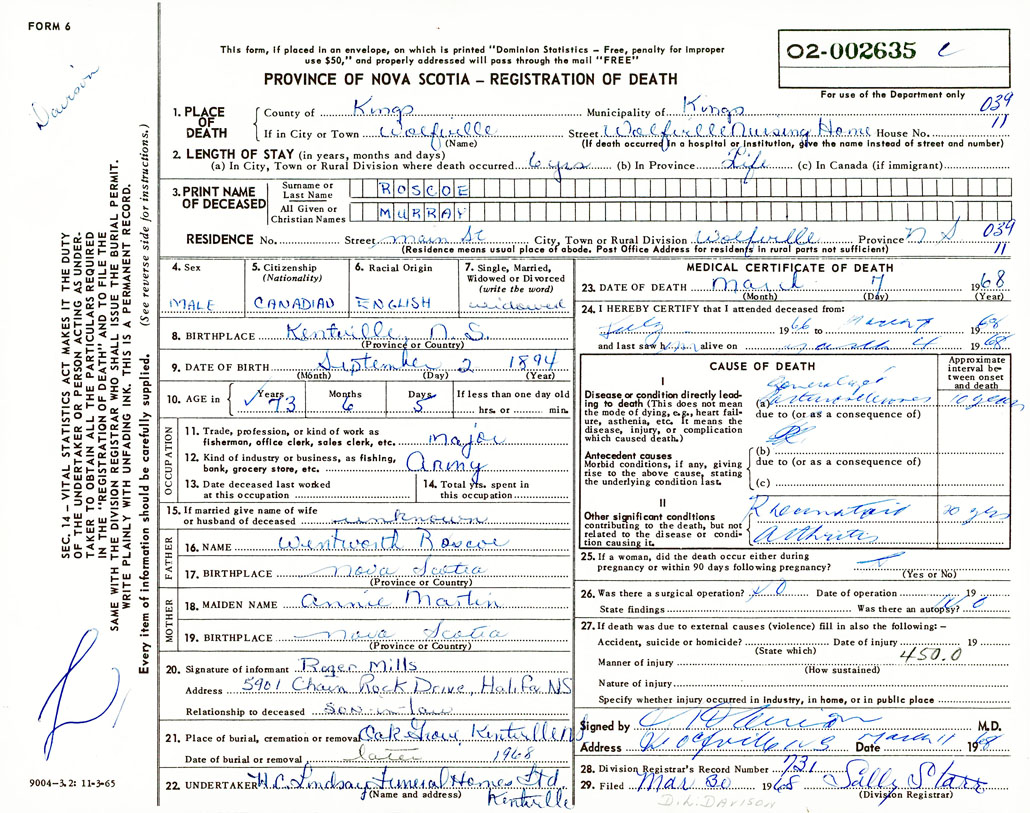 FORM 6
Davison
This form, if placed in an envelope, on which is printed "Dominion Statistics – Free, penalty for improper
use $50," and properly addressed will pass through the mail "FREE"
PROVINCE OF NOVA SCOTIA – REGISTRATION OF DEATH
02-002635 c
For use of the Department only
SEC. 14 – VITAL STATISTICS ACT MAKES IT THE DUTY
OF THE UNDERTAKER OR PERSON ACTING AS UNDER-
TAKER TO OBTAIN ALL THE PARTICULARS REQUIRED
IN THE "REGISTRATION OF DEATH" AND TO FILE THE
SAME WITH THE DIVISION REGISTRAR WHO SHALL ISSUE THE BURIAL PERMIT.
WRITE PLAINLY WITH UNFADING INK. THIS IS A PERMANENT RECORD.
Every item of information should be carefully supplied. (See reverse side for instructions.)
1. PLACE OF DEATH
County of Kings Municipality of Kings 039
If in City or Town Wolfville Street Wolfville Nursing Home House No. 11
(Name) (If death occurred in a hospital or institution, give the name instead of street and number)
2. LENGTH OF STAY (in years, months and days)
(a) In City, Town or Rural Division where death occurred 6 yrs (b) In Province Life (c) In Canada (if immigrant)
3. PRINT NAME OF DECEASED
Surname or Last Name ROSCOE
All Given or Christian Names MURRAY
RESIDENCE No. Street Main St City, Town or Rural Division Wolfville Province N S 039
(Residence means usual place of abode. Post Office Address for residents in rural parts not sufficient) 11
4. Sex MALE
5. Citizenship (Nationality) CANADIAN
6. Racial Origin ENGLISH
7. Single, Married, Widowed or Divorced (write the word) widowed
8. BIRTHPLACE Kentville N.S.
(Province or Country)
9. DATE OF BIRTH September 2 1894
(Month) (Day) (Year)
10. AGE in Years 73 Months 6 Days 5 If less than one day old
hrs. or min.
OCCUPATION
11. Trade, profession, or kind of work as
fisherman, office clerk, sales clerk, etc. Major
12. Kind of industry or business, as fishing,
bank, grocery store, etc. Army
13. Date deceased last worked
at this occupation
14. Total yrs. spent in
this occupation
15. If married give name of wife
or husband of deceased unknown
FATHER
16. NAME Wentworth Roscoe
17. BIRTHPLACE Nova Scotia
(Province or Country)
MOTHER
18. MAIDEN NAME Annie Martin
19. BIRTHPLACE Nova Scotia
(Province or Country)
20. Signature of informant Roger Mills
Address 5901 Chain Rock Drive, Halifax NS
Relationship to deceased son-in-law
21. Place of burial, cremation or removal Oak Grove, Kentville NS
Date of burial or removal later 1968
22. UNDERTAKER H.C. Lindsay Funeral Homes Ltd.
(Name and address) Kentville
9004-3.2: 11-3-65
MEDICAL CERTIFICATE OF DEATH
23. DATE OF DEATH March 7 1968
(Month) (Day) (Year)
24. I HEREBY CERTIFY that I attended deceased from:
July 1966 to March 1968
and last saw him alive on March 4 1968
CAUSE OF DEATH
Approximate interval between onset and death
I
Disease or condition directly lead-
ing to death (This does not mean
the mode of dying, e.g., heart fail-
ure, asthenia, etc. It means the
disease, injury, or complication
which caused death.)
Generalized
(a) 10 years
due to (or as a consequence of)
Antecedent causes
Morbid conditions, if any, giving
rise to the above cause, stating
the underlying condition last.
(b)
due to (or as a consequence of)
(c)
II
Other significant conditions
contributing to the death, but not
related to the disease or condi-
tion causing it.
Rheumatoid
Arthritis
yrs
25. If a woman, did the death occur either during
pregnancy or within 90 days following pregnancy?
(Yes or No)
26. Was there a surgical operation? NO Date of operation 19
State findings Was there an autopsy? NO
27. If death was due to external causes (violence) fill in also the following: –
Accident, suicide or homicide? Date of injury 19
(State which) 450.0
Manner of injury
(How sustained)
Nature of injury
Specify whether injury occurred in industry, in home, or in public place
Signed by M.D.
Address Wolfville N.S. Date March 11 1968
28. Division Registrar's Record Number 731
29. Filed Mar 30 1968 Sally Starr
(Division Registrar)
D.L. DAVISON